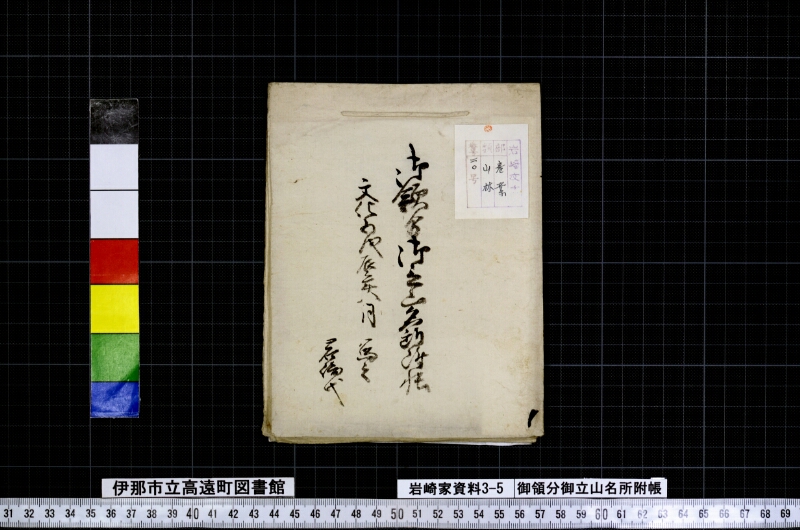 御領分御立山名所附帳
文化五戊辰歳八月
写之
岩崎氏
岩崎文庫
部 産業
山林
第五〇号
伊那市立高遠町図書館
岩崎家資料3-5
御領分御立山名所附帳
31 32 33 34 35 36 37 38 39 40 41 42 43 44 45 46 47 48 49 50 51 52 53 54 55 56 57 58 59 60 61 62 63 64 65 66 67 68 69